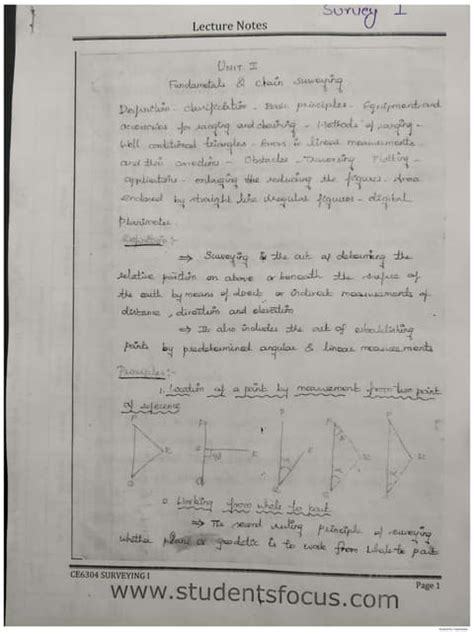 Survey I
Lecture Notes
UNIT I
Fundamentals & Chain Surveying
Definition - classification - Basic principles - Equipment and
accessories for ranging and chaining - Methods of ranging -
Well conditioned triangles - Errors in linear measurements
and their corrections - Obstacles - Traversing - Plotting -
applications - enlarging the reducing the figures - Area
enclosed by straight line irregular figures - digital
Planimeter.
Definition :-
⇒ Surveying is the art of determining the
relative position on above or beneath the surface of
the earth by means of direct or indirect measurements of
distance, direction and elevation
⇒ It also includes the art of establishing
points by predetermined angular & linear measurements
Principles :-
1. Location of a point by measurement from two point
of reference
P P P P P
R R R R R
Q Q Q Q Q
Working from whole to part
⇒ The second ruling principle of surveying
whether plane or geodetic is to work from whole to part
CE6304 SURVEYING I
Page 1
www.studentsfocus.com